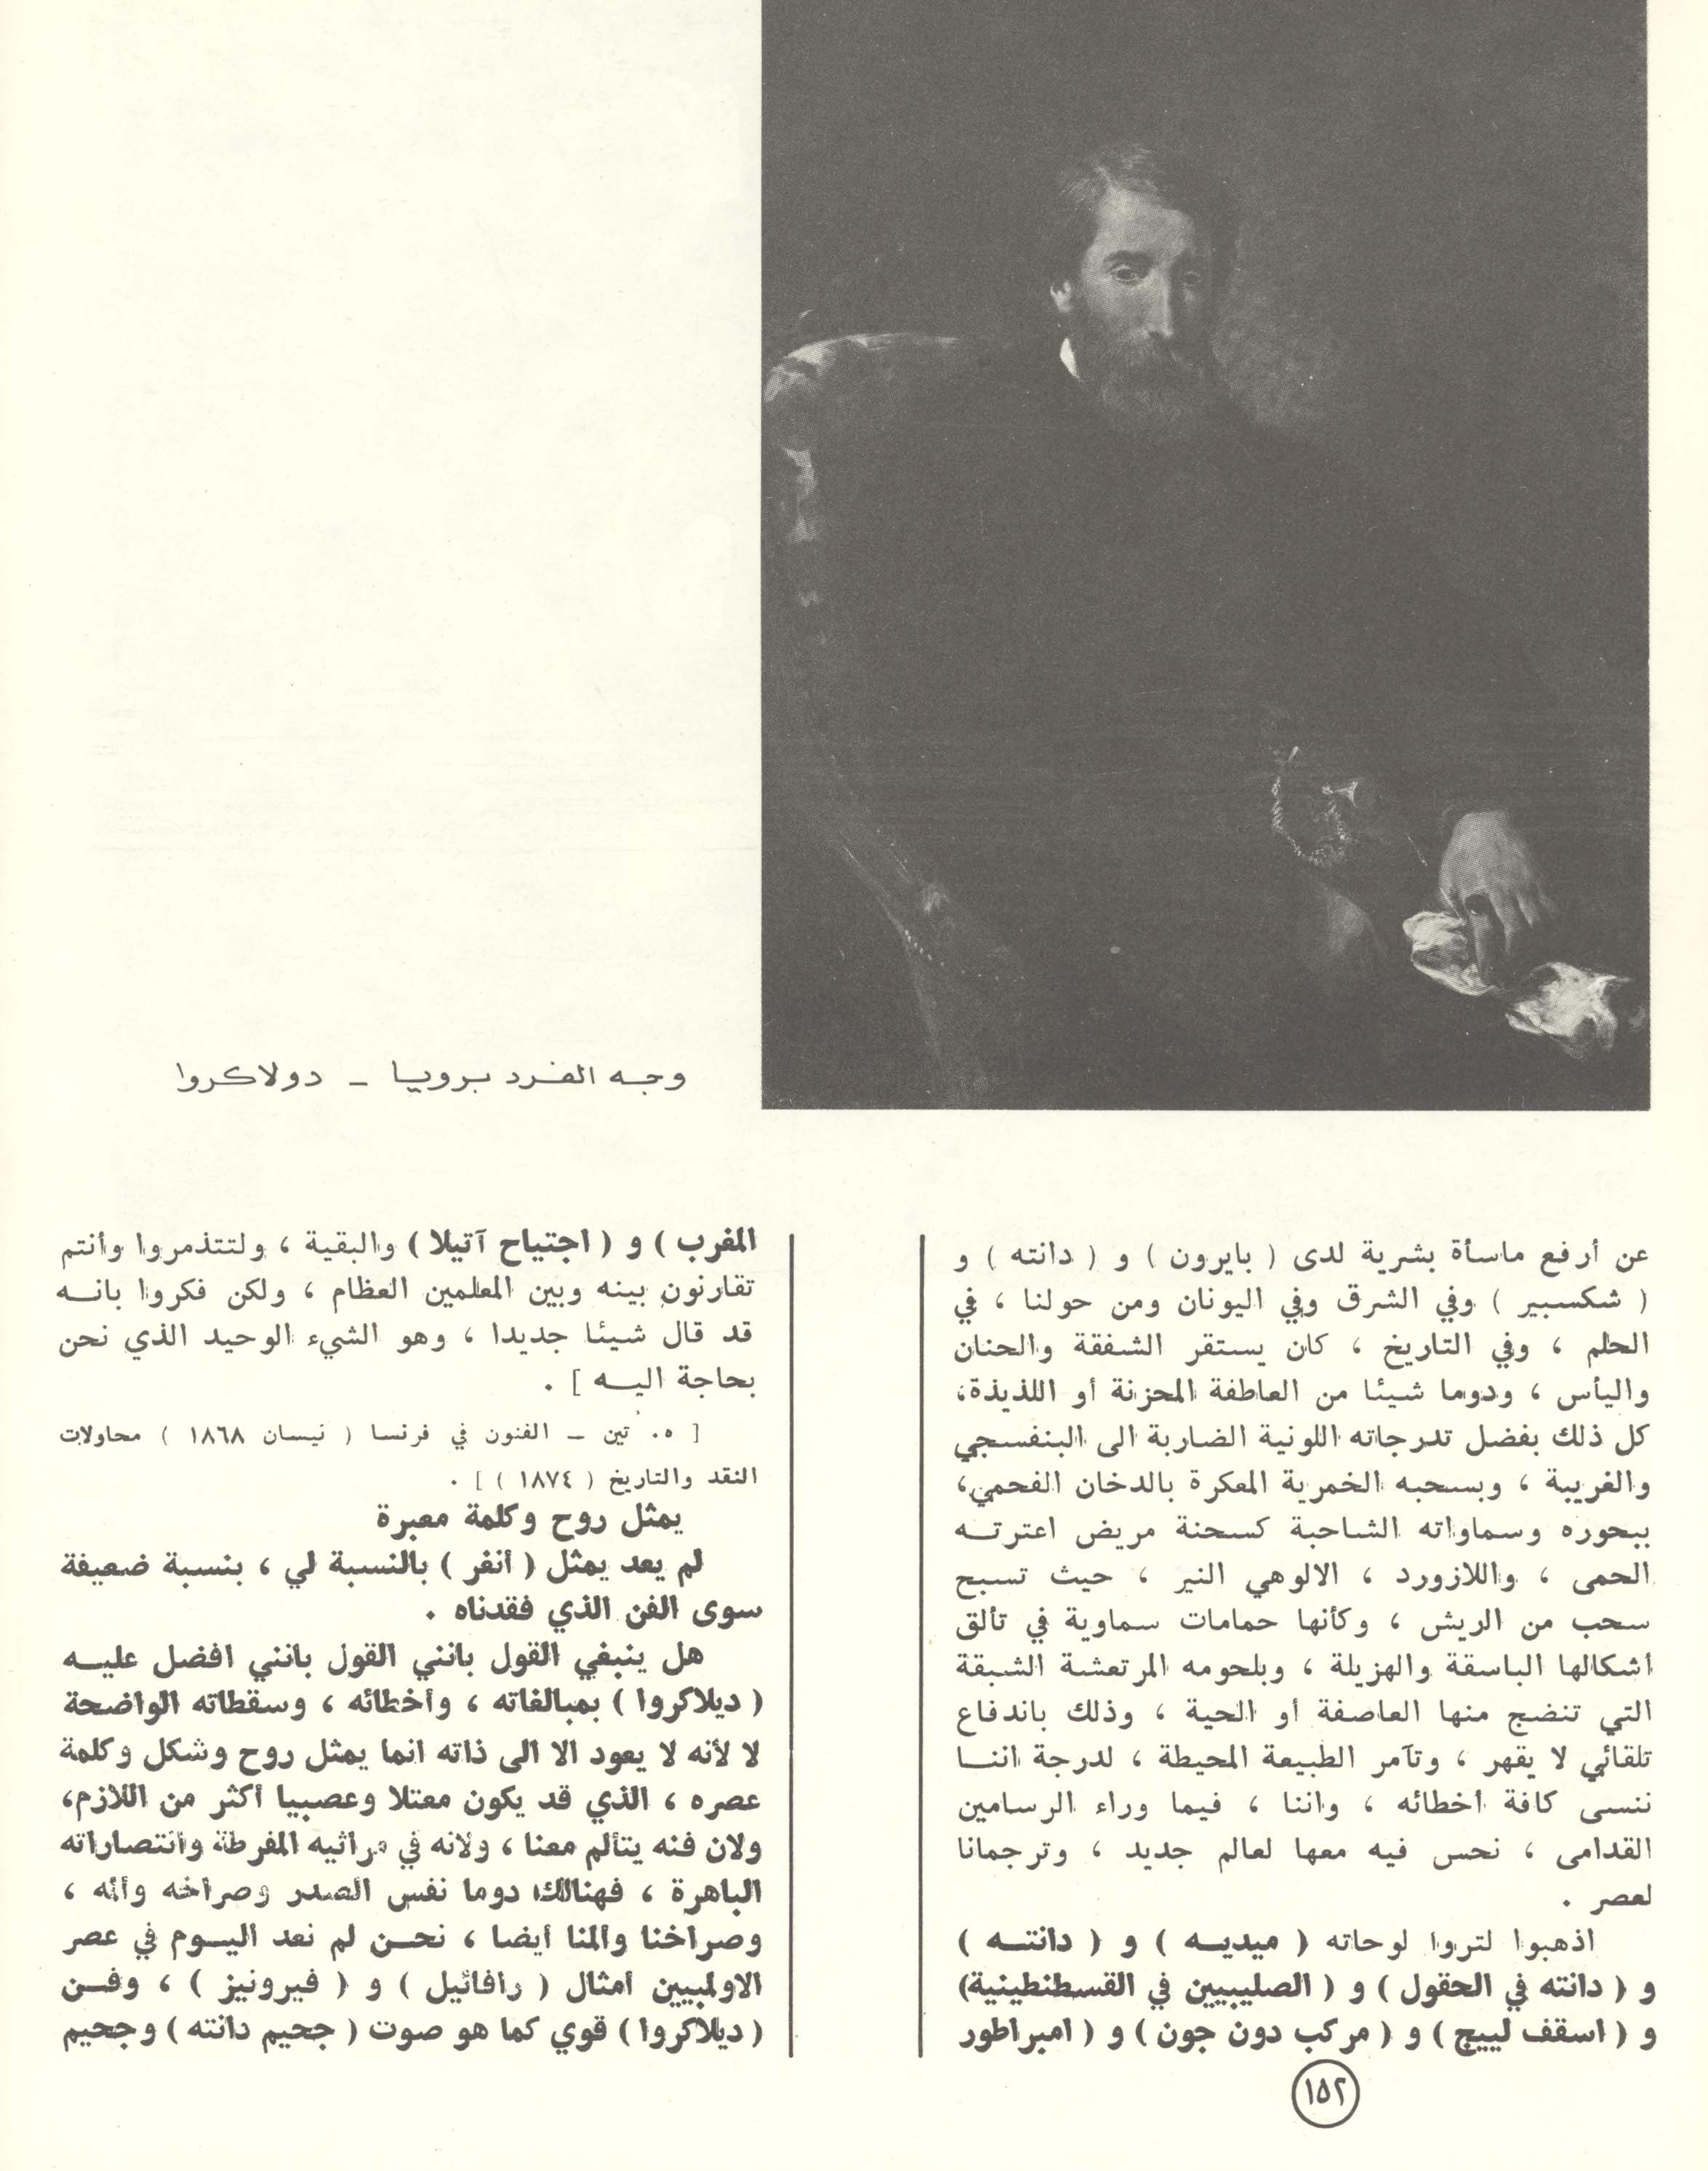 وجه الفرد برويا - دولاكروا
عن أرفع ماسأة بشرية لدى ( بايرون ) و ( دانته ) و
( شكسبير ) وفي الشرق وفي اليونان ومن حولنا ، في
الحلم ، وفي التاريخ ، كان يستقر الشفقة والحنان
واليأس ، ودوما شيئا من العاطفة المحزنة أو اللذيذة،
كل ذلك بفضل تدرجاته اللونية الضاربة الى البنفسجي
والغريبة ، وبسحبه الخمرية المعكرة بالدخان الفحمي،
ببحوره وسماواته الشاحبة كسحنة مريض اعترتـه
الحمى ، واللازورد ، الالوهي النير ، حيث تسبح
سحب من الريش ، وكأنها حمامات سماوية في تألق
أشكالها الباسقة والهزيلة ، وبلحومه المرتعشة الشبقة
التي تنضج منها العاصفة أو الحية ، وذلك باندفاع
تلقائي لا يقهر ، وتآمر الطبيعة المحيطة ، لدرجة اننـا
ننسى كافة أخطائه ، واننا ، فيما وراء الرسامين
القدامى ، نحس فيه معها لعالم جديد ، وترجمانا
لعصر .
اذهبوا لتروا لوحاته ( ميديـه ) و ( دانتـه )
و ( دانته في الحقول ) و ( الصليبيين في القسطنطينية)
و ( اسقف لييج ) و ( مركب دون جون ) و ( امبراطور
المغرب ) و ( اجتياح آتيلا ) والبقية ، ولتتذمروا وأنتم
تقارنون بينه وبين المعلمين العظام ، ولكن فكروا بانـه
قد قال شيئا جديدا ، وهو الشيء الوحيد الذي نحن
بحاجة اليـه ] .
[ ه. تين - الفنون في فرنسا ( نيسان ١٨٦٨ ) محاولات
النقد والتاريخ ( ١٨٧٤ ) ] .
يمثل روح وكلمة معبرة
لم يعد يمثل ( أنغر ) بالنسبة لي ، بنسبة ضعيفة
سوى الفن الذي فقدناه .
هل ينبغي القول بانني القول بانني افضل عليـه
( ديلاكروا ) بمبالغاته ، وأخطائه ، وسقطاته الواضحة
لا لأنه لا يعود الا الى ذاته انما يمثل روح وشكل وكلمة
عصره ، الذي قد يكون معتلا وعصبيا أكثر من اللازم،
ولان فنه يتألم معنا ، ولانه في مراثيه المفرطة وانتصاراته
الباهرة ، فهنالك دوما نفس الصدر وصراخه وألمه ،
وصراخنا وألمنا أيضا ، نحـن لم نعد اليـوم في عصر
الاولمبيين أمثال ( رافائيل ) و ( فيرونيز ) ، وفـن
( ديلاكروا ) قوي كما هو صوت ( جحيم دانته ) وجحيم
١٥٢